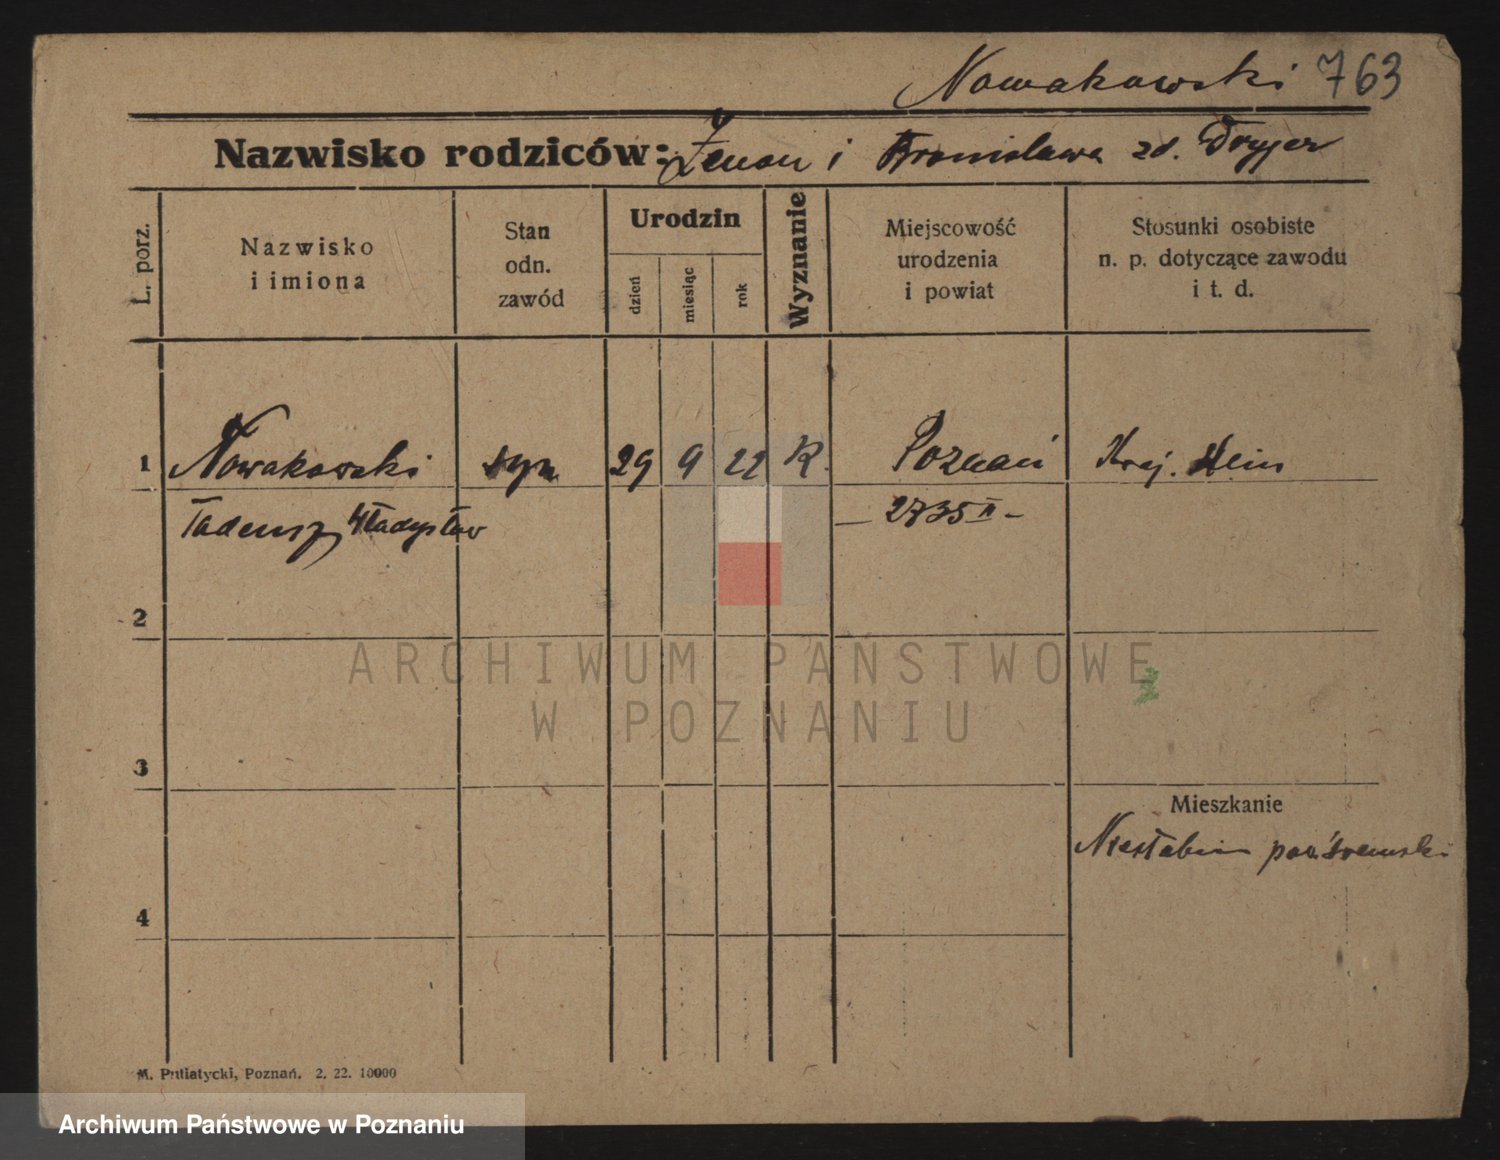 Nowakowski 763
Nazwisko rodziców: Zenon i Bronisława zd. Dreyer
L. porz.
Nazwisko
i imiona
Stan
odn.
zawód
Urodzin
dzień
miesiąc
rok
Wyznanie
Miejscowość
urodzenia
i powiat
Stosunki osobiste
n. p. dotyczące zawodu
i t. d.
1 Nowakowski syn 29 9 22 R. Poznań
Tadeusz Władysław – 2735 II –
2
ARCHIWUM PAŃSTWOWE
W POZNANIU
3
Mieszkanie
Niesłabin pow. śremski
4
M. Putiatycki, Poznań. 2. 22. 10000
Archiwum Państwowe w Poznaniu